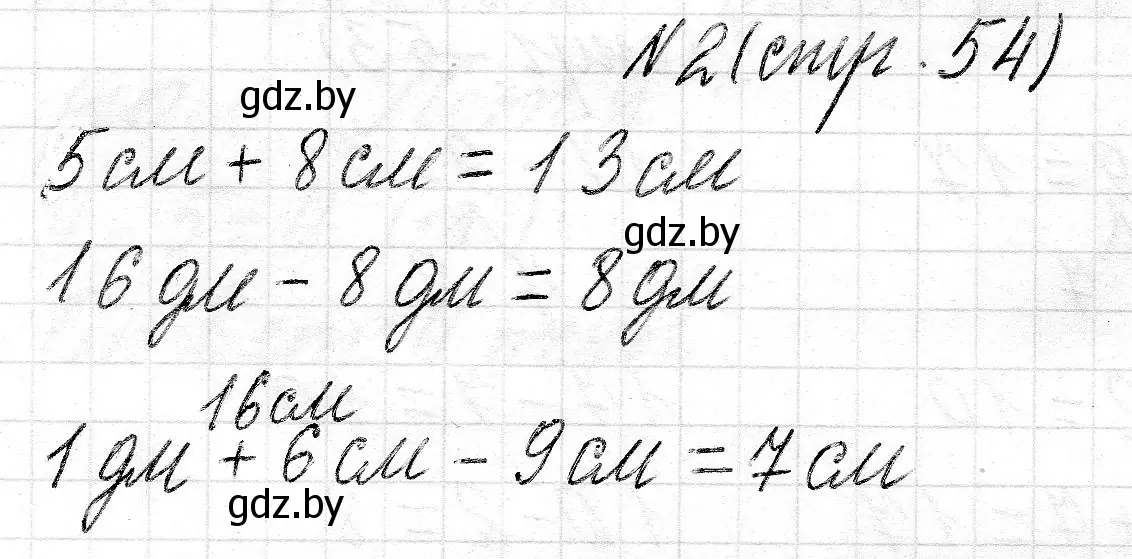 N2(стр. 54)
gdz.by
5см + 8см = 13см
gdz.by
16дм - 8дм = 8дм
16см
1дм + 6см - 9см = 7см
gdz.by